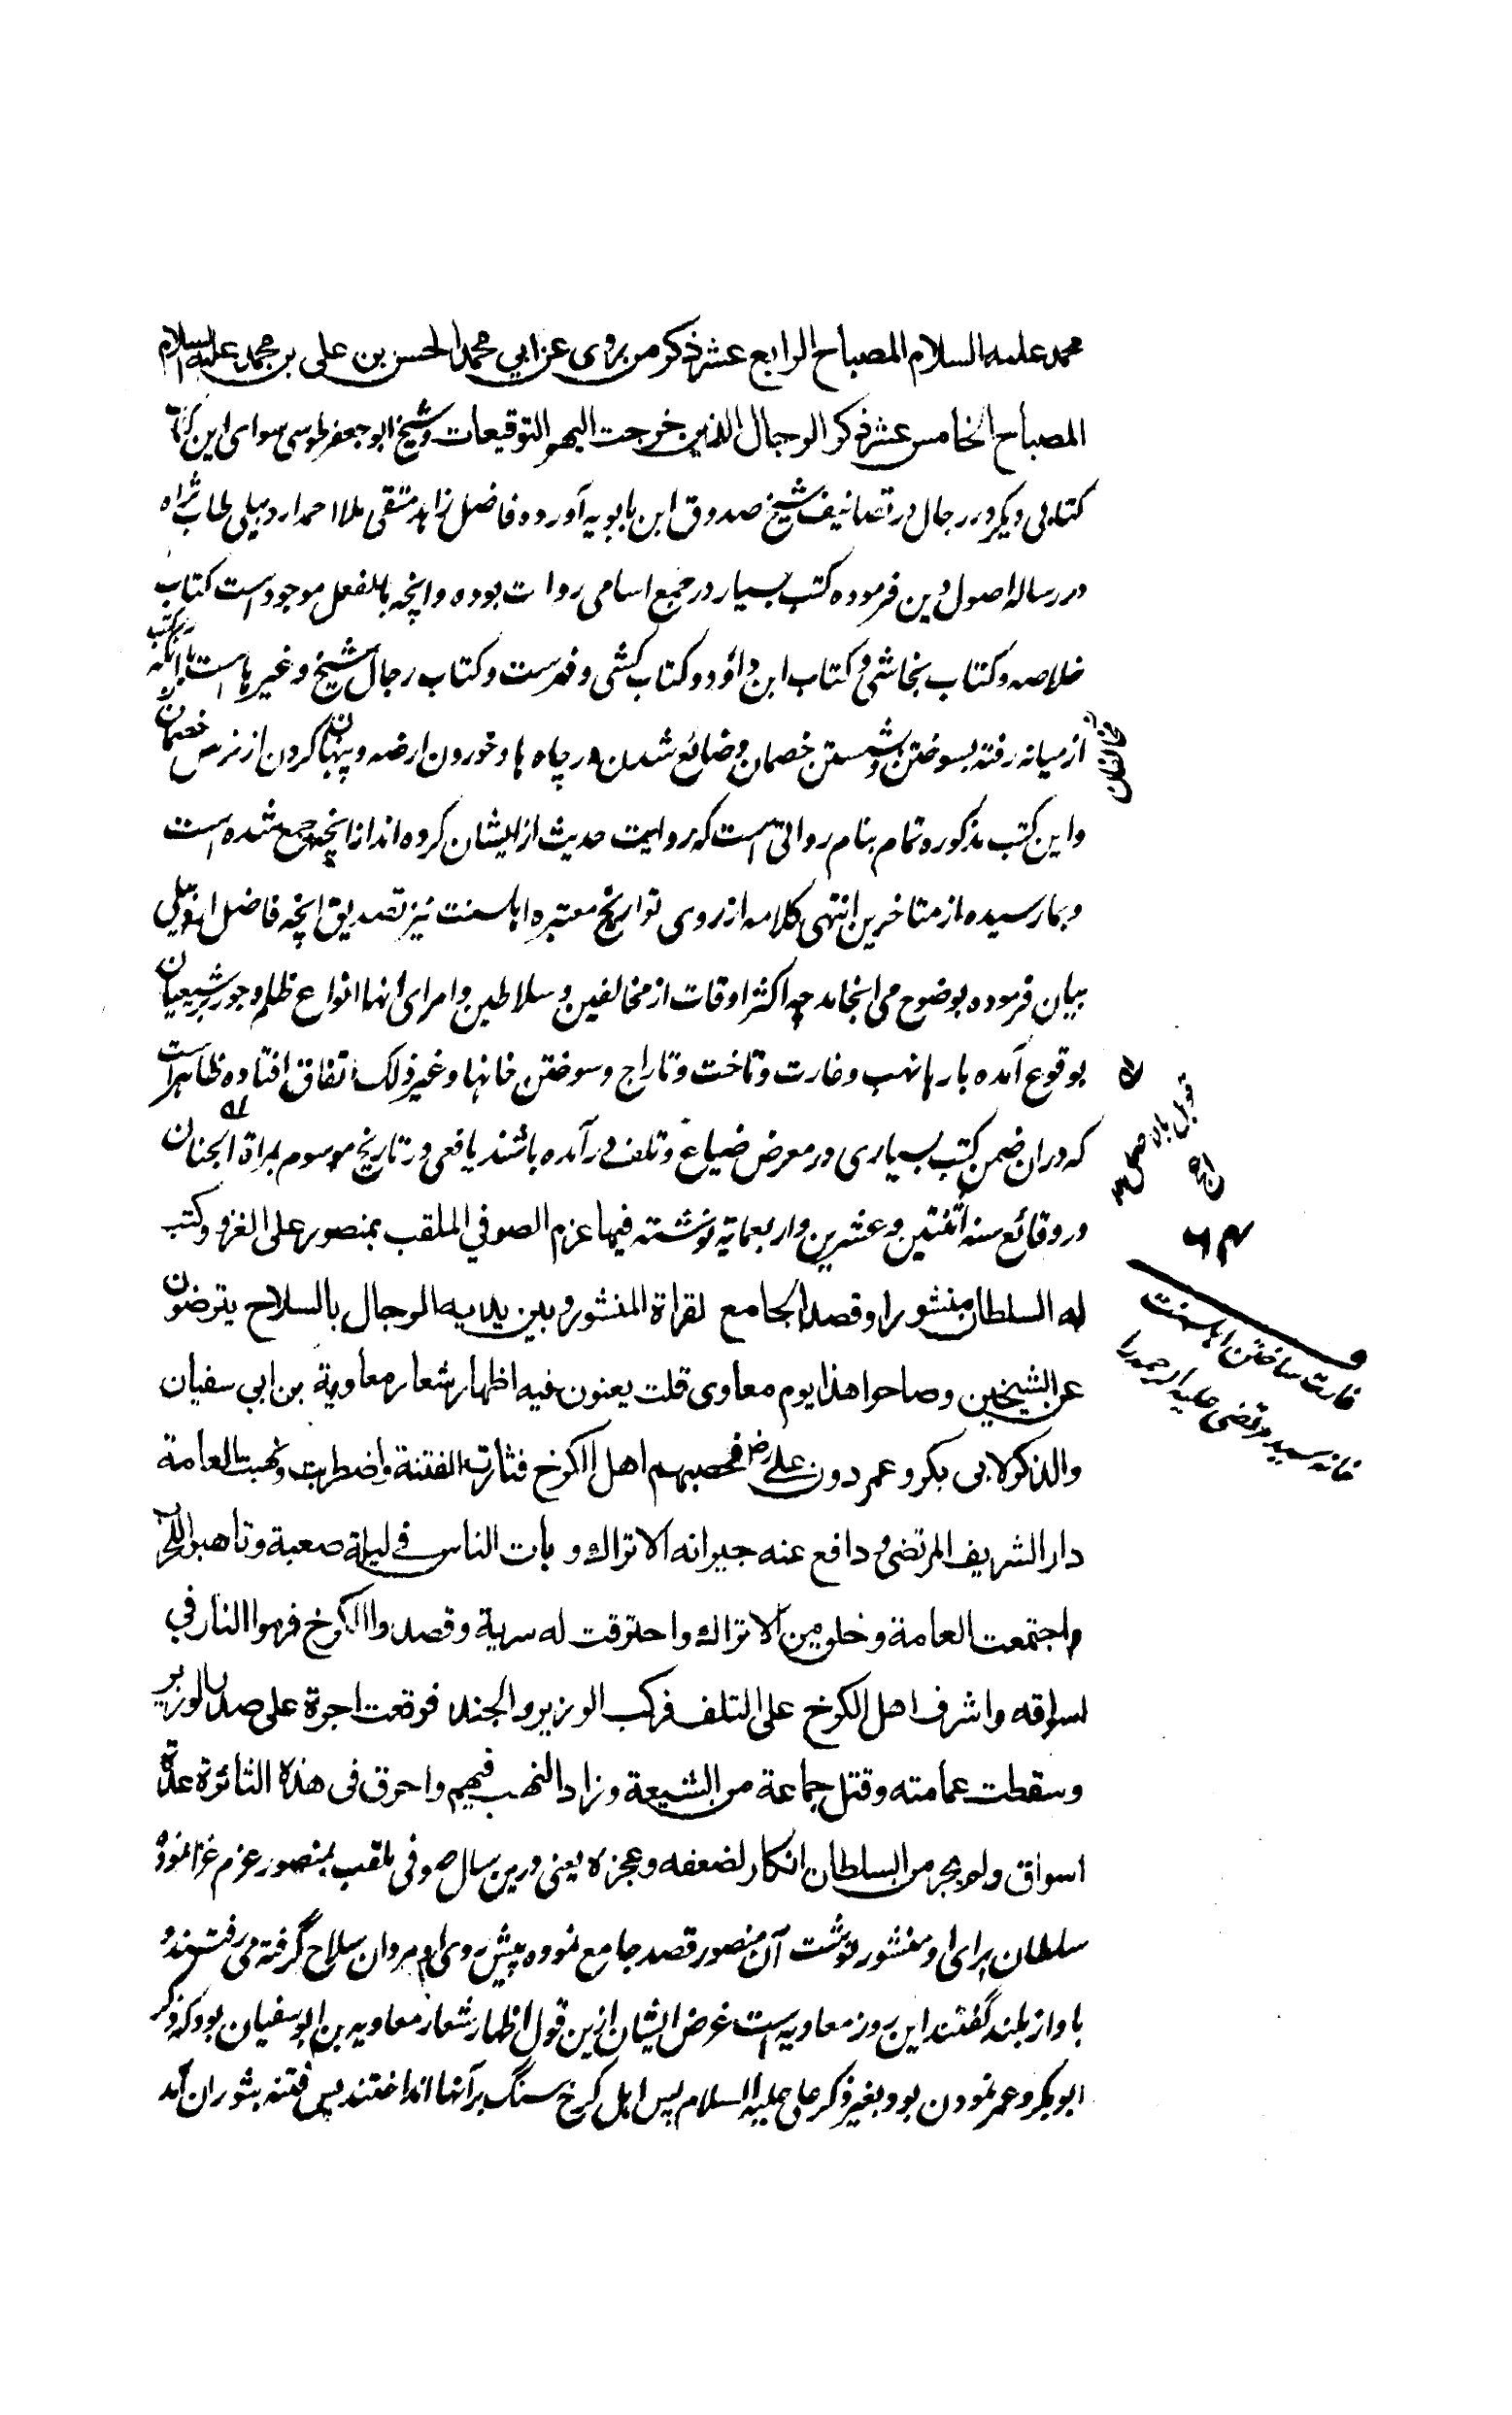 محمد علیه السلام المصباح الرابع عشر ذکر من یروی عن ابی محمد الحسن بن علی بن محمد علیه السلام
المصباح الخامس عشر ذکر الرجال الذین خرجت الیهم التوقیعات و شیخ ابو جعفر طوسی سوای این کتاب
کتابی دیگر در رجال در تصانیف شیخ صدوق ابن بابویه آورده فاضل زاهد متقی ملا احمد اردبیلی طاب ثراه
در رساله اصول دین فرموده کتب بسیار در جمع اسامی روات بوده و انچه بالفعل موجود است کتاب
خلاصه و کتاب نجاشی و کتاب ابن داؤد و کتاب کشی و فهرست و کتاب رجال شیخ و غیرها است با انکه کتب
از میانه رفته بسوختن و شستن خصمان و ضائع شدن در چاه ها و خوردن ارضه و پنهان کردن از ترس خصمان
و این کتب مذکوره تمام بنام رواتی است که روایت حدیث از ایشان کرده اند از انچه جمع شده است
و بما رسیده از متاخرین انتهی کلامه از روی تواریخ معتبره اهلسنت نیز تصدیق انچه فاضل اردبیلی
بیان فرموده بوضوح می انجامد چه اکثر اوقات از مخالفین و سلاطین و امرای انها انواع ظلم و جور بر شیعیان
بوقوع آمده بارها نهب و غارت و تاخت و تاراج و سوختن خانها و غیر ذلک اتفاق افتاده ظاهر است
که دران ضمن کتب بسیاری در معرض ضیاع و تلف در آمده باشند یافعی در تاریخ موسوم بمراة الجنان
در وقائع سنه اثنتین و عشرین و اربعمایة نوشته فیها عزم الصوفی الملقب بمنصور علی الغزو و کتب
له السلطان منشورا و قصد الجامع لقراة المنشور و بین یدیه الرجال بالسلاح یترضون
عن الشیخین و صاحوا هذا یوم معاوی قلت یعنون فیه اظهار شعار معاویة بن ابی سفیان
والذکر لابی بکر و عمر دون علی رض فحصبهم اهل الکرخ فثارت الفتنة و اضطربت و نهبت العامة
دار الشریف المرتضی و دافع عنه جیرانه الاتراک و بات الناس فی لیلة صعبة و تاهبوا للحرب
واجتمعت العامة و خلو من الاتراک و احترقت له سریة و قصدوا الکرخ فرموا النار فی
اسواقه و اشرف اهل الکرخ علی التلف فرکب الوزیر والجند فوقعت اجرة علی صدر الوزیر
و سقطت عمامته و قتل جماعة من الشیعة و زاد النهب فیهم و احرق فی هذه الثائرة عدة
اسواق و لم یجر من السلطان انکار لضعفه و عجزه یعنی درین سال صوفی ملقب بمنصور عزم غزا نمود و
سلطان برای او منشور نوشت آن منصور قصد جامع نموده پیش روی او مردان سلاح گرفته می رفتند و
باواز بلند گفتند این روز معاویه است غرض ایشان ازین قول اظهار شعار معاویه بن ابو سفیان بود که ذکر
ابوبکر و عمر نمودن بود بغیر ذکر علی علیه السلام پس اهل کرخ سنگ بر آنها انداختند پس فتنه بشوران آمد
مخالفان
غارت ساختن اهلسنت
خانه سید مرتضی علیه الرحمه را